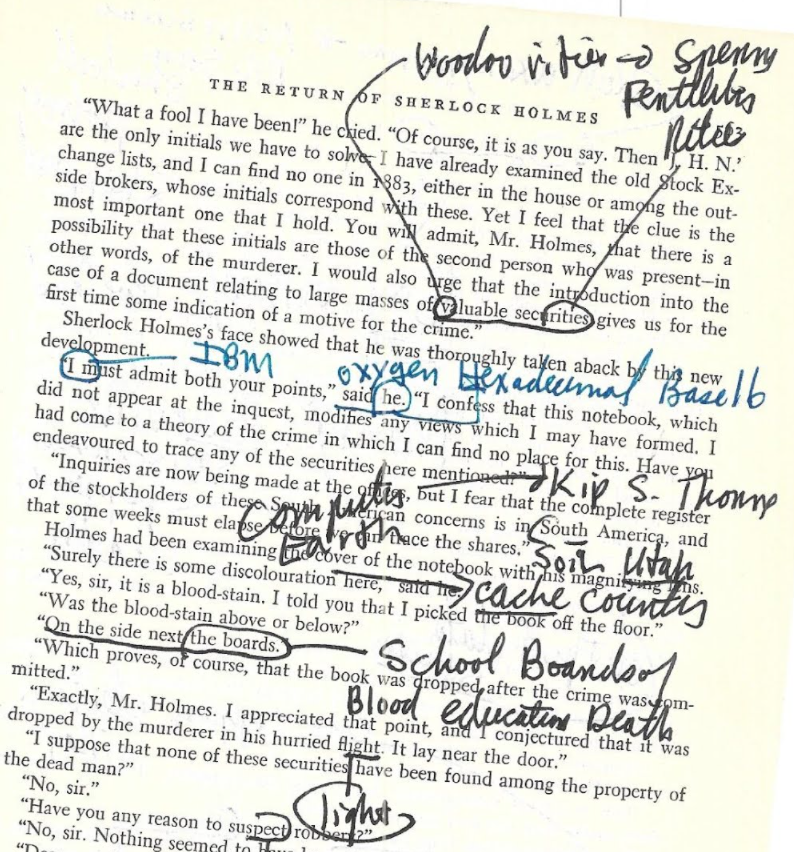 Spenny
THE RETURN OF SHERLOCK HOLMES
“What a fool I have been!” he cried. “Of course, it is as you say. Then ‘J. H. N.’
are the only initials we have to solve. I have already examined the old Stock Ex-
change lists, and I can find no one in 1883, either in the house or among the out-
side brokers, whose initials correspond with these. Yet I feel that the clue is the
most important one that I hold. You will admit, Mr. Holmes, that there is a
possibility that these initials are those of the second person who was present—in
other words, of the murderer. I would also urge that the introduction into the
case of a document relating to large masses of valuable securities gives us for the
first time some indication of a motive for the crime.”
Sherlock Holmes’s face showed that he was thoroughly taken aback by this new
development.
IBM
oxygen Hexadecimal Base 16
“I must admit both your points,” said he. “I confess that this notebook, which
did not appear at the inquest, modifies any views which I may have formed. I
had come to a theory of the crime in which I can find no place for this. Have you
endeavoured to trace any of the securities here mentioned?”
“Inquiries are now being made at the offices, but I fear that the complete register
Kip S. Thorne
of the stockholders of these South American concerns is in South America, and
Computes
Earth
that some weeks must elapse before we can trace the shares.”
Soih Utah
Holmes had been examining the cover of the notebook with his magnifying lens.
“Surely there is some discolouration here,” said he.
cache counts
“Yes, sir, it is a blood-stain. I told you that I picked the book off the floor.”
“Was the blood-stain above or below?”
“On the side next the boards.”
School Boards of
Blood education Death
“Which proves, of course, that the book was dropped after the crime was com-
mitted.”
“Exactly, Mr. Holmes. I appreciated that point, and I conjectured that it was
dropped by the murderer in his hurried flight. It lay near the door.”
“I suppose that none of these securities have been found among the property of
the dead man?”
light
“No, sir.”
“Have you any reason to suspect robbery?”
“No, sir. Nothing seemed to have